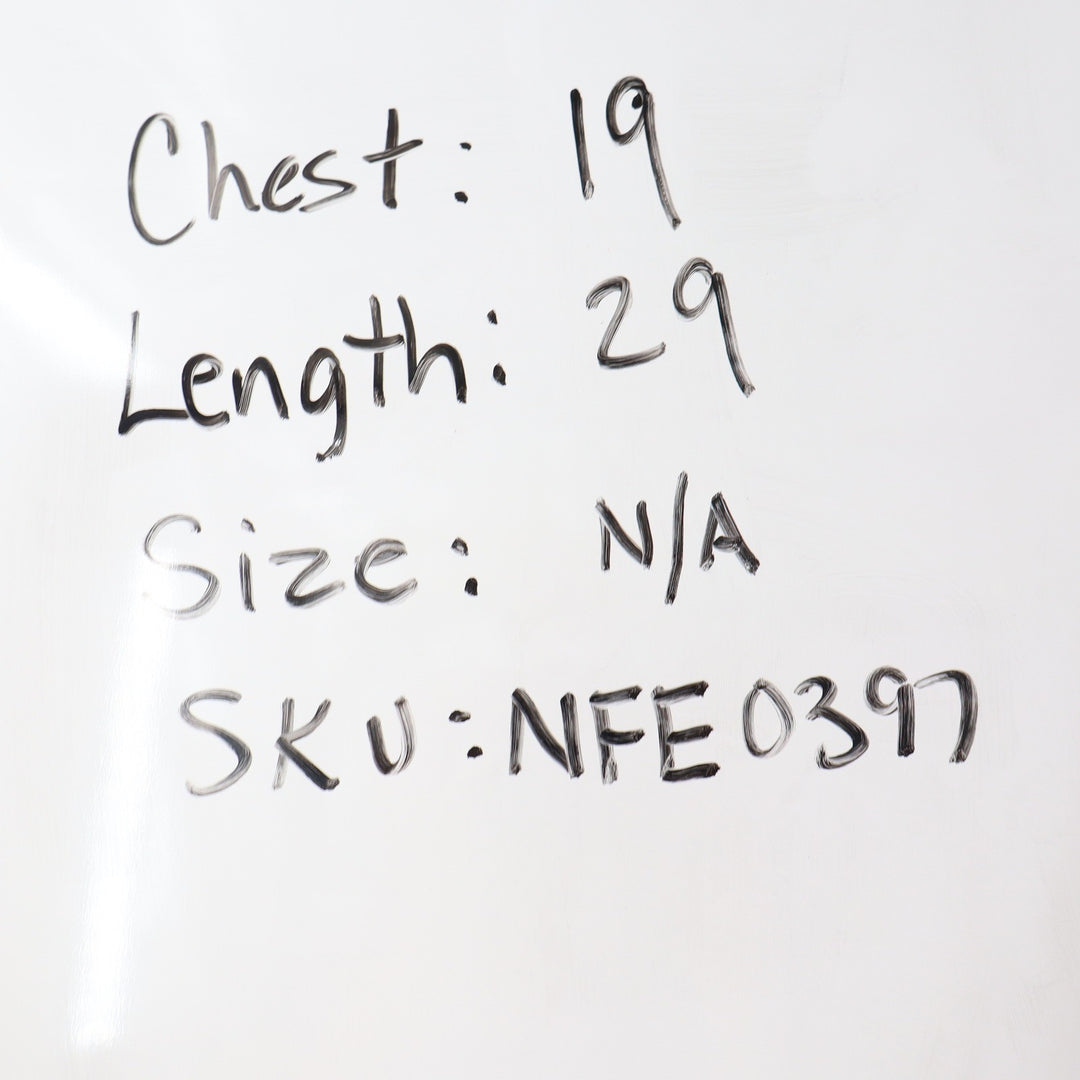 Chest: 19
Length: 29
Size: N/A
SKU: NFE0397